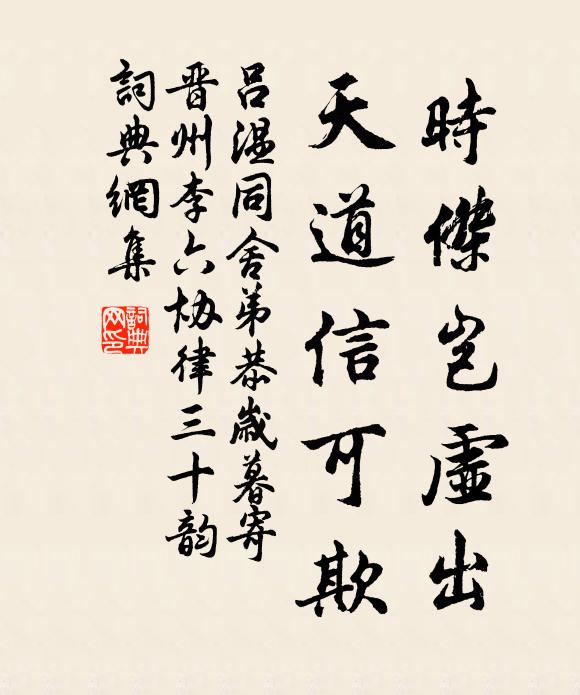 時傑豈虛出
天道信可欺
呂溫同舍弟恭歲暮寄
晋州李六協律三十韵
詞典網集
詞典
网印